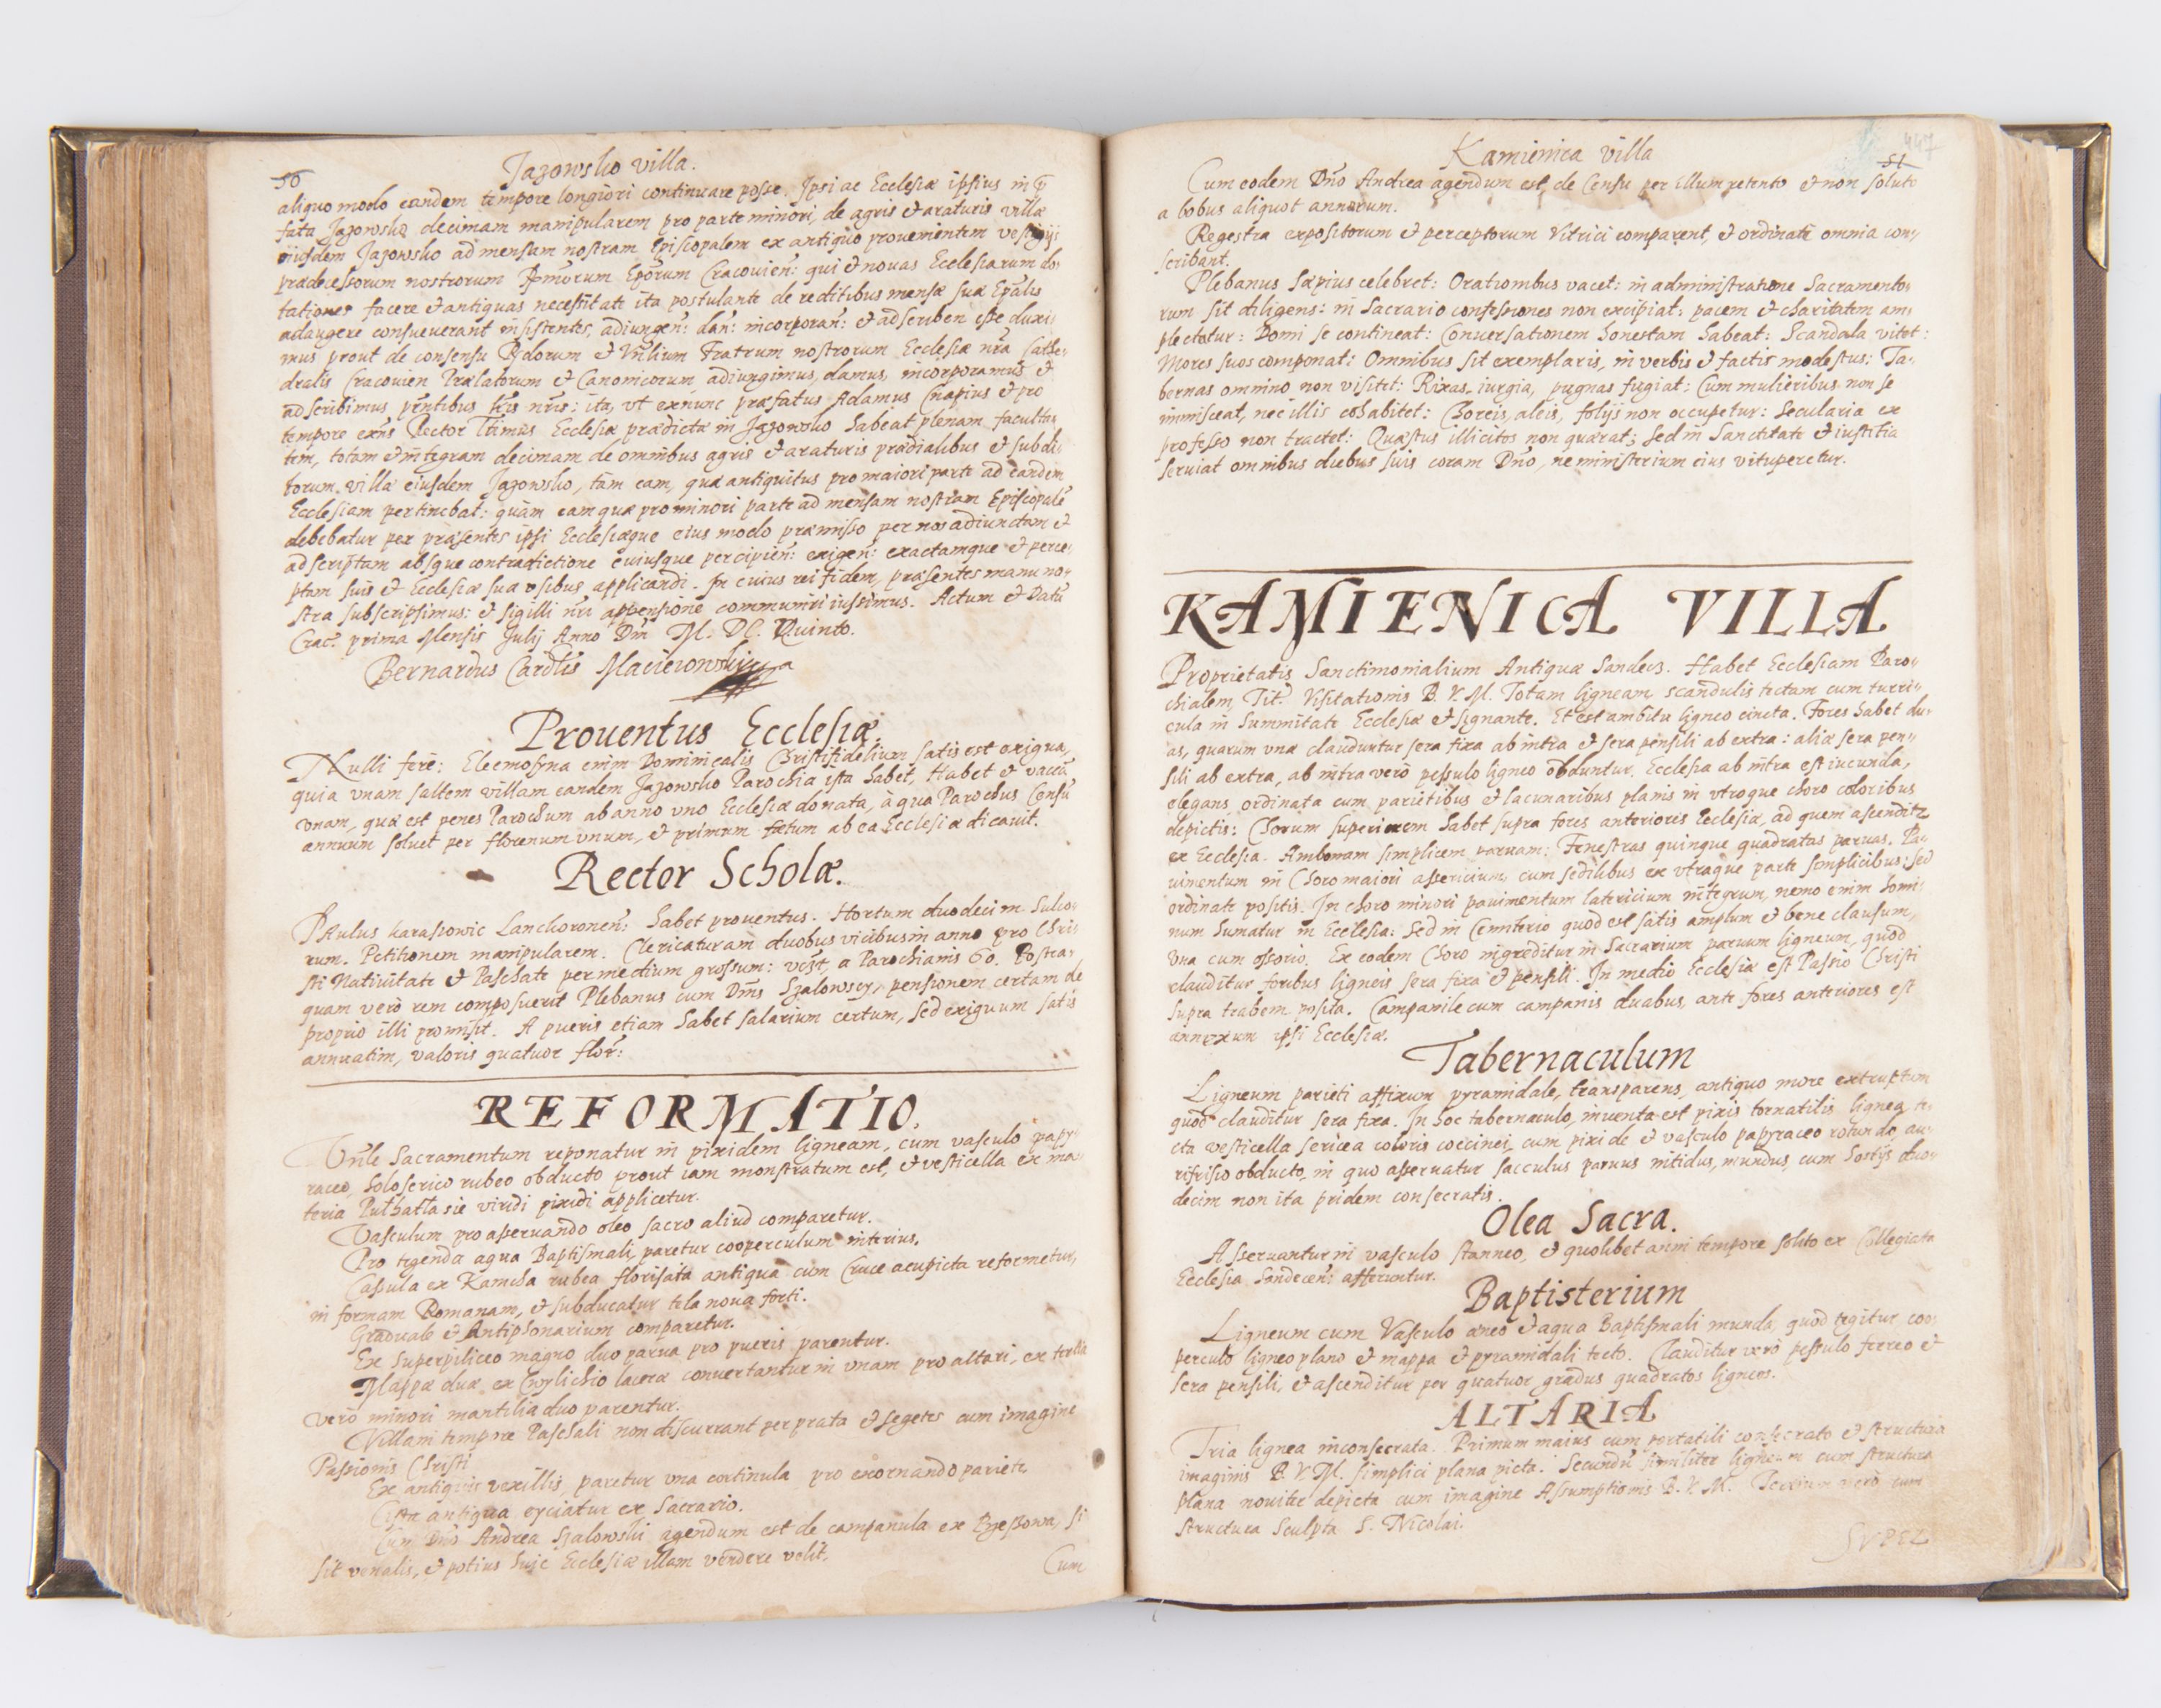 50
Jazowsko villa.
aliquo modo eandem tempore longiori continuare posse. Ipsi ac Ecclesiæ ipsius in
fata Jazowsko decimam manipularem pro parte minori, de agris et araturis villæ
eiusdem Jazowsko ad mensam nostram Episcopalem ex antiquo prouenientem
prædecessorum nostrorum Rmorum Eporum Cracouien: qui et nouas Ecclesiarum do-
tationes facere et antiquas necessitate ita postulante de reditibus mensæ suæ Epalis
adaugere consueuerant insistentes, adiungen: dan: incorporan: et adscriben esse duxi-
mus prout de consensu Fratrum nostrorum Ecclesiæ nræ Cathe-
dralis Cracouien Prælatorum et Canonicorum adiungimus, damus, incorporamus et
adscribimus pñtibus lris nris: ita, vt exnunc præfatus Adamus Cnapius et pro
tempore exñs Rector Ecclesiæ prædictæ in Jazowsko habeat plenam faculta-
tem, totam et integram decimam de omnibus agris et araturis prædialibus et subdi-
torum villæ eiusdem Jazowsko, tam eam, quæ antiquitus pro maiori parte ad eandem
Ecclesiam pertinebat: quàm eam quæ pro minori parte ad mensam nostram Episcopale
debebatur per præsentes ipsi Ecclesiæque eius modo præmisso per nos adiunctam et
adscriptam absque contradictione cuiusque percipien: exigen: exactamque et perce-
ptam suis et Ecclesiæ suæ vsibus applicandi. In cuius rei fidem, præsentes manu no-
stra subscripsimus: et sigilli nri appensione communiri iussimus. Actum et Datu
Crac: prima Mensis Julij Anno Dni M. DC. Quinto.
Bernardus Cardlis Macieiowski
Prouentus Ecclesiæ.
Nulli ferè: Eleemosyna enim Dominicalis Christifidelium satis est exigua,
quia vnam saltem villam eandem Jazowsko Parochia ista habet, Habet et vaccã
vnam, quæ est penes Parochum ab anno vno Ecclesiæ donata, à qua Parochus Censũ
annuum soluet per florenum vnum, et primum fætum ab ea Ecclesiæ dicauit.
Rector Scholæ.
Paulus Karasiowic Lanchoronen: habet prouentus. Hortum duodecim Sulco-
rum. Petitionem manipularem. Clericaturam duobus vicibus in anno pro Chri-
sti Natiuitate et Paschate per medium grossum: vizt, a Parochianis 60. Postea-
quam verò rem composuerit Plebanus cum Dnis Szalowscy, pensionem certam de
proprio illi promisit. A pueris etiam habet salarium certum, sed exiguum satis
annuatim, valoris quatuor flor:
REFORMATIO.
Vnle Sacramentum reponatur in pixidem ligneam, cum vasculo papy-
raceo, holoserico rubeo obducto prout iam monstratum est, et vesticella ex ma-
teria viridi pixidi applicetur.
Vasculum pro asseruando oleo sacro aliud comparetur.
Pro tegenda aqua Baptismali, paretur cooperculum interius.
Casula ex Kamcha rubea florisata antiqua cum Cruce acupicta reformetur,
in formam Romanam, et subducatur tela noua forti.
Graduale et Antiphonarium comparetur.
Ex Superpiliceo magno duo parua pro pueris parentur.
Mappæ duæ ex Cwylichio laceræ conuertantur in vnam pro altari, ex tertia
verò minori mantilia duo parentur.
Villani tempore Paschali non discurrant per prata et segetes cum imagine
Passionis Christi
Ex antiquis vexillis, paretur vna cortinula pro exornando pariete.
Cista antiqua eyciatur ex Sacrario.
Cum Dno Andrea Szalowski agendum est de campanula ex si
sit venalis, et potius huic Ecclesiæ illam vendere velit.
Cum
Kamienica villa
51
447
Cum eodem Dno Andrea agendum est de Censu per illum retento et non soluto
a bobus aliquot annorum.
Regestra expositorum et perceptorum Vitrici comparent, et ordinate omnia con-
scribant.
Plebanus sæpius celebret: Orationibus vacet: in administratione Sacramento-
rum sit diligens: in Sacrario confessiones non excipiat: pacem et charitatem am-
plectatur: Domi se contineat: Conuersationem honestam habeat: Scandala vitet:
Mores suos componat: Omnibus sit exemplaris, in verbis et factis modestus: Ta-
bernas omnino non visitet: Rixas, iurgia, pugnas fugiat: Cum mulieribus non se
immisceat, nec illis cohabitet: Choreis, aleis, folijs non occupetur: Secularia ex
professo non tractet: Quæstus illicitos non quærat; Sed in Sanctitate et iustitia
seruiat omnibus diebus suis coram Dno, ne ministerium eius vituperetur.
KAMIENICA VILLA
Proprietatis Sanctimonialium Antiquæ Sandecz. Habet Ecclesiam Paro-
chialem Tit. Visitationis B. V. M. Totam ligneam scandulis tectam cum turri-
cula in summitate Ecclesiæ et signante. Et est ambitu ligneo cincta. Fores habet du-
as, quarum vnæ clauduntur sera fixa ab intra et sera pensili ab extra: aliæ sera pen-
sili ab extra, ab intra verò pessulo ligneo obduntur. Ecclesia ab intra est iucunda,
elegans ordinata cum parietibus et lacunaribus planis in vtroque choro coloribus
depictis: Chorum superiorem habet supra fores anterioris Ecclesiæ, ad quem ascenditr
ex Ecclesia. Ambonam simplicem paruam: Fenestras quinque quadratas paruas. Pa-
uimentum in Choro maiori assericium cum sedilibus ex vtraque parte simplicibus: sed
ordinate positis. In choro minori pauimentum latericium integrum, nemo enim homi-
num humatur in Ecclesia: Sed in Cemiterio quod est satis amplum et bene clausum,
vna cum ossorio. Ex eodem Choro ingreditur in Sacrarium paruum ligneum, quod
clauditur foribus ligneis sera fixa et pensili. In medio Ecclesiæ est Passio Christi
supra trabem posita. Campanile cum campanis duabus, ante fores anteriores est
annexum ipsi Ecclesiæ.
Tabernaculum
Ligneum parieti affixum pyramidale, transparens, antiquo more extructum
quod clauditur sera fixa. In hoc tabernaculo, inuenta est pixis tornatilis lignea te-
cta vesticella sericea coloris coccinei, cum pixide et vasculo papyraceo rotundo, au-
rifrisio obducto, in quo asseruatur sacculus paruus nitidus, mundus, cum hostijs duo-
decim non ita pridem consecratis.
Olea Sacra.
Asseruantur in vasculo stanneo, et quolibet anni tempore solito ex Collegiata
Ecclesia Sandecen: afferuntur.
Baptisterium
Ligneum cum Vasculo æneo et aqua Baptismali munda, quod tegitur coo-
perculo ligneo plano et mappa et pyramidali tecto. Clauditur verò pessulo ferreo et
sera pensili, et ascenditur per quatuor gradus quadratos ligneos.
ALTARIA
Tria lignea inconsecrata. Primum maius cum portatili consecrato et structura
imaginis B. V. M. simplici plana picta. Secundũ similiter ligneum cum structura
plana nouiter depicta cum imagine Assumptionis B. V. M. Tertium verò cum
structura sculpta S. Nicolai.
SVPEL